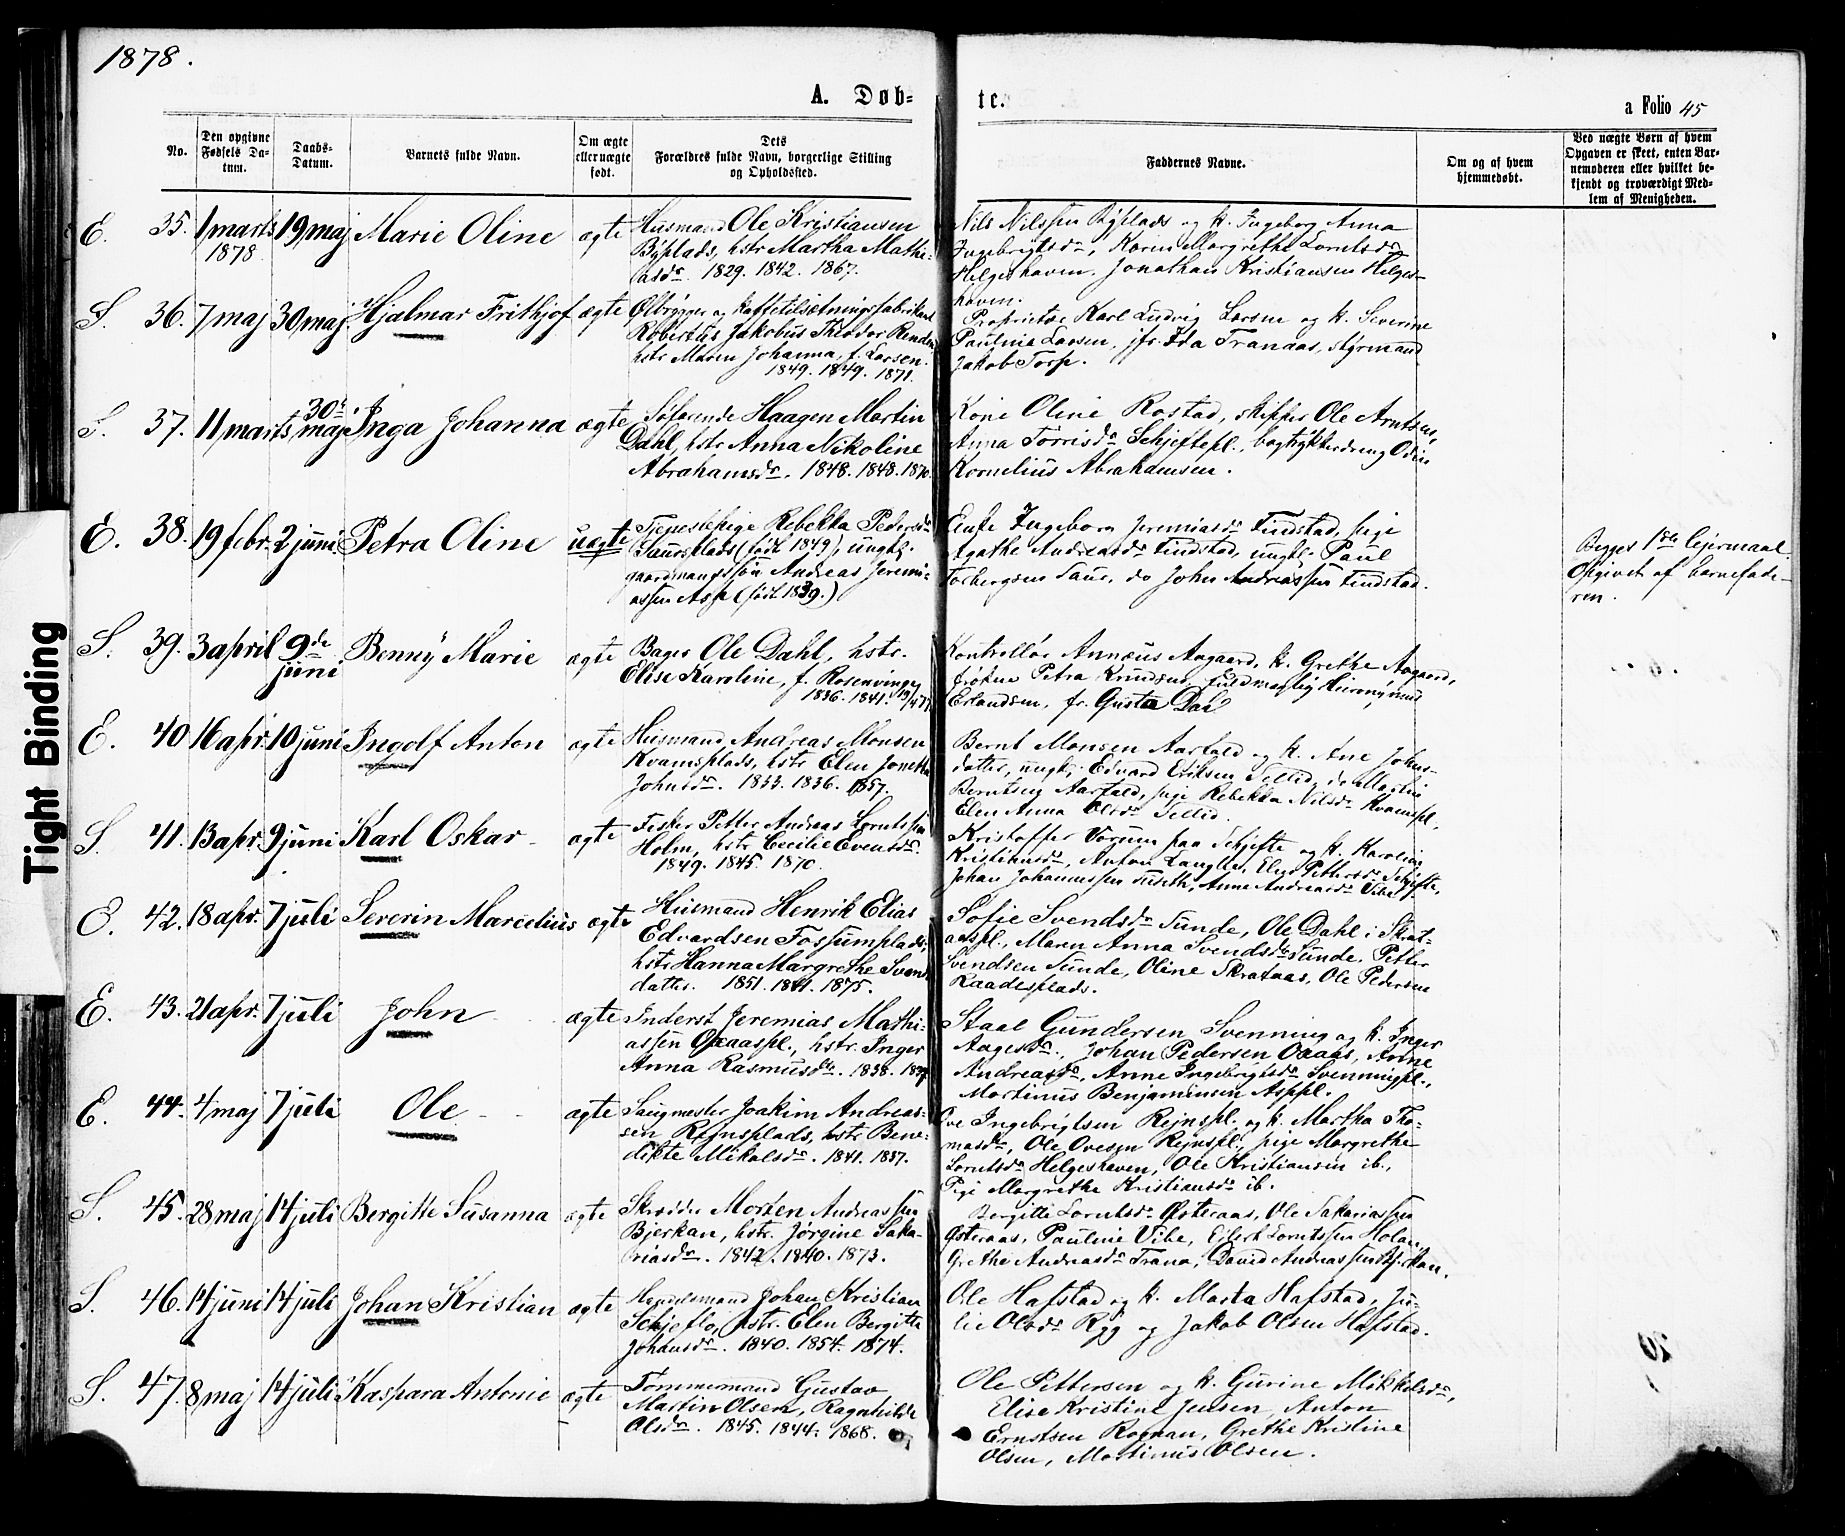 1878.
A. Døb-
te.
a Folio 45
No.
Den opgivne Fødsels Da-tum.
Daabs-Datum.
Barnets fulde Navn.
Om ægte eller uægte født.
Dets Forældres fulde Navn, borgerlige Stilling og Opholdssted.
Faddernes Navne.
Om og af hvem hjemmedøbt.
Ved uægte Børn af hvem Opgaven er skeet, enten Bar-nemoderen eller hvilket be-kjendt og troværdigt Med-lem af Menigheden.
E. 35. 1 marts 1878 19 maj Marie Oline ægte
Husmand Ole Kristiansen
Byplads, hstr Martha Mathi-
asdr. 1829. 1842. 1867.
Nils Nilssen Byplads og k. Ingeborg Anna
Ingebrigtsdr, Karen Margrethe Lorntsdr
Helgeshaven, Jonathan Kristiansen Helges-
haven.
S. 36. 7 maj 30 maj Hjalmar Frithjof ægte
Ølbrygger og kaffetilsætningsfabrikant
Robertus Jakobus Theodor
hstr Maren Johanna, f. Larsen.
1849. 1849. 1871.
Proprietær Karl Ludvig Larsen og k. Severine
Paulina Larsen, jfr. Ida Tranaas, styrmand
Jakob Torp.
S. 37. 11 marts 30te maj Inga Johanna ægte
Søfarende Haagen Martin
Dahl, hstr Anna Nikoline
Abrahamsdr. 1848. 1848. 1870.
Kone Oline Rostad, skipper Ole Arntsen,
Anna Torrisdr Schjeftepl.,
Kornelius Abrahamsen.
E. 38. 19 febr. 2 juni Petra Oline uægte
Tjenestepige Rebekka Pedersdr
Saursplads (født 1849), ungk.
gaardmandssøn Andreas Jeremi-
assen Asp (født 1839.)
Enke Ingeborg Jeremiasdr Tindstad, pige
Agathe Andreasdr Tindstad, ungk. Paul
Torbergsen Saur, do John Andreassen Tindstad.
Begges 1ste lejermaal.
Opgivet af barnefade-
ren.
S. 39. 3 april 9de juni Benny Marie ægte
Bager Ole Dahl, hstr.
Elise Karoline, f. Rosenvinge
1836. 1841. 19/4 77
Kontrollør Annæus Aagaard, k. Grethe Aagaard,
frøken Petra Knudsen, fuldmægtig Hieronymus
Erlandsen, fr. Gusta Dahl
E. 40. 16 apr. 10 juni Ingolf Anton ægte
Husmand Andreas Monsen
Kvamsplads, hstr Elen Jonetta
Johnsdr. 1833. 1836. 1857.
Bernt Monsen Aarstad og k. Ane Johns-
datter, ungk. Edvard Eriksen Tellid, do Martin
Berntsen Aarstad, pige Rebekka Nilsdr Kvamspl.,
Elen Anna Olsdr Tellid.
S. 41. 13 apr. 9 juni Karl Oskar ægte
Fisker Petter Andreas Lorntssen
Holm, hstr Cecilie Evensdr.
1849. 1845. 1870.
Kristoffer Vorum paa Schjefte og k. Karoline
Kristiansdr, Anton Langli, Elen Pettersdr Schjefte,
Johan Johannessen Tuseth, Anne Andreasdr Vibe.
E. 42. 18 apr. 7 juli Severin Marcelius ægte
Husmand Henrik Elias
Edvardsen Fossumplads,
hstr Hanna Margrethe Svens-
datter. 1851. 1841. 1875.
Sofie Svendsdr Sunde, Ole Dahl i Skrat-
aaspl., Maren Anna Svendsdr Sunde, Petter
Svendsen Sunde, Oline Skrataas, Ole Pedersen
Raadesplads.
E. 43. 21 apr. 7 juli John ægte
Inderst Jeremias Mathi-
assen Oxaaspl., hstr. Inger
Anna Rasmusdtr. 1838.
Staal Gundersen Svenning og k. Inger
Aagesdr., Johan Pedersen Oxaas, Anne
Andreasdr, Anne Ingebrigtsdr Svenningpl.,
Martinus Benjaminsen Asppl.
E. 44. 4 maj 7 juli Ole ægte
Saugmester Joakim Andreas-
sen Rejnsplads, hstr Bene-
dikte Mikalsdr. 1841. 1837.
Ove Ingebrigtsen Rejnspl. og k. Martha Tho-
masdr, Ole Ovesen Rejnspl., pige Margrethe
Lorntsdr Helgeshaven, Ole Kristiansen ib.,
Pige Margrethe Kristiansdr ib.
S. 45. 28 maj 14 juli Bergitte Susanna ægte
Skrædder Morten Andreassen
Bjerkan, hstr. Jørgine Saka-
riasdr. 1842. 1840. 1873.
Bergitte Lorntsdr Østeraas, Ole Sakariassen
Østeraas, Pauline Vibe, Eilert Lorntssen Holan,
Grethe Andreasdr Trana, David Andreassen Bjerkan.
S. 46. 14 juni 14 juli Johan Kristian ægte
Handelsmand Johan Kristian
Schjeflo, hstr. Elen Bergitte
Johansdr. 1840. 1854. 1874.
Ole Hafstad og k. Marta Hafstad, Ju-
lie Olsdr Rygg og Jakob Olsen Hafstad.
S. 47. 8 maj 14 juli Kaspara Antonie ægte
Tømmermand Gustav
Martin Olsen, Ragnhilde
Olsdr. 1845. 1844. 1868.
Ole Pettersen og k. Gurine Mikkelsdr,
Elise Kristine Jensen, Anton
Ernstsen Rognan, Grethe Kristine
Olsen, Martinus Olsen.
Tight Binding